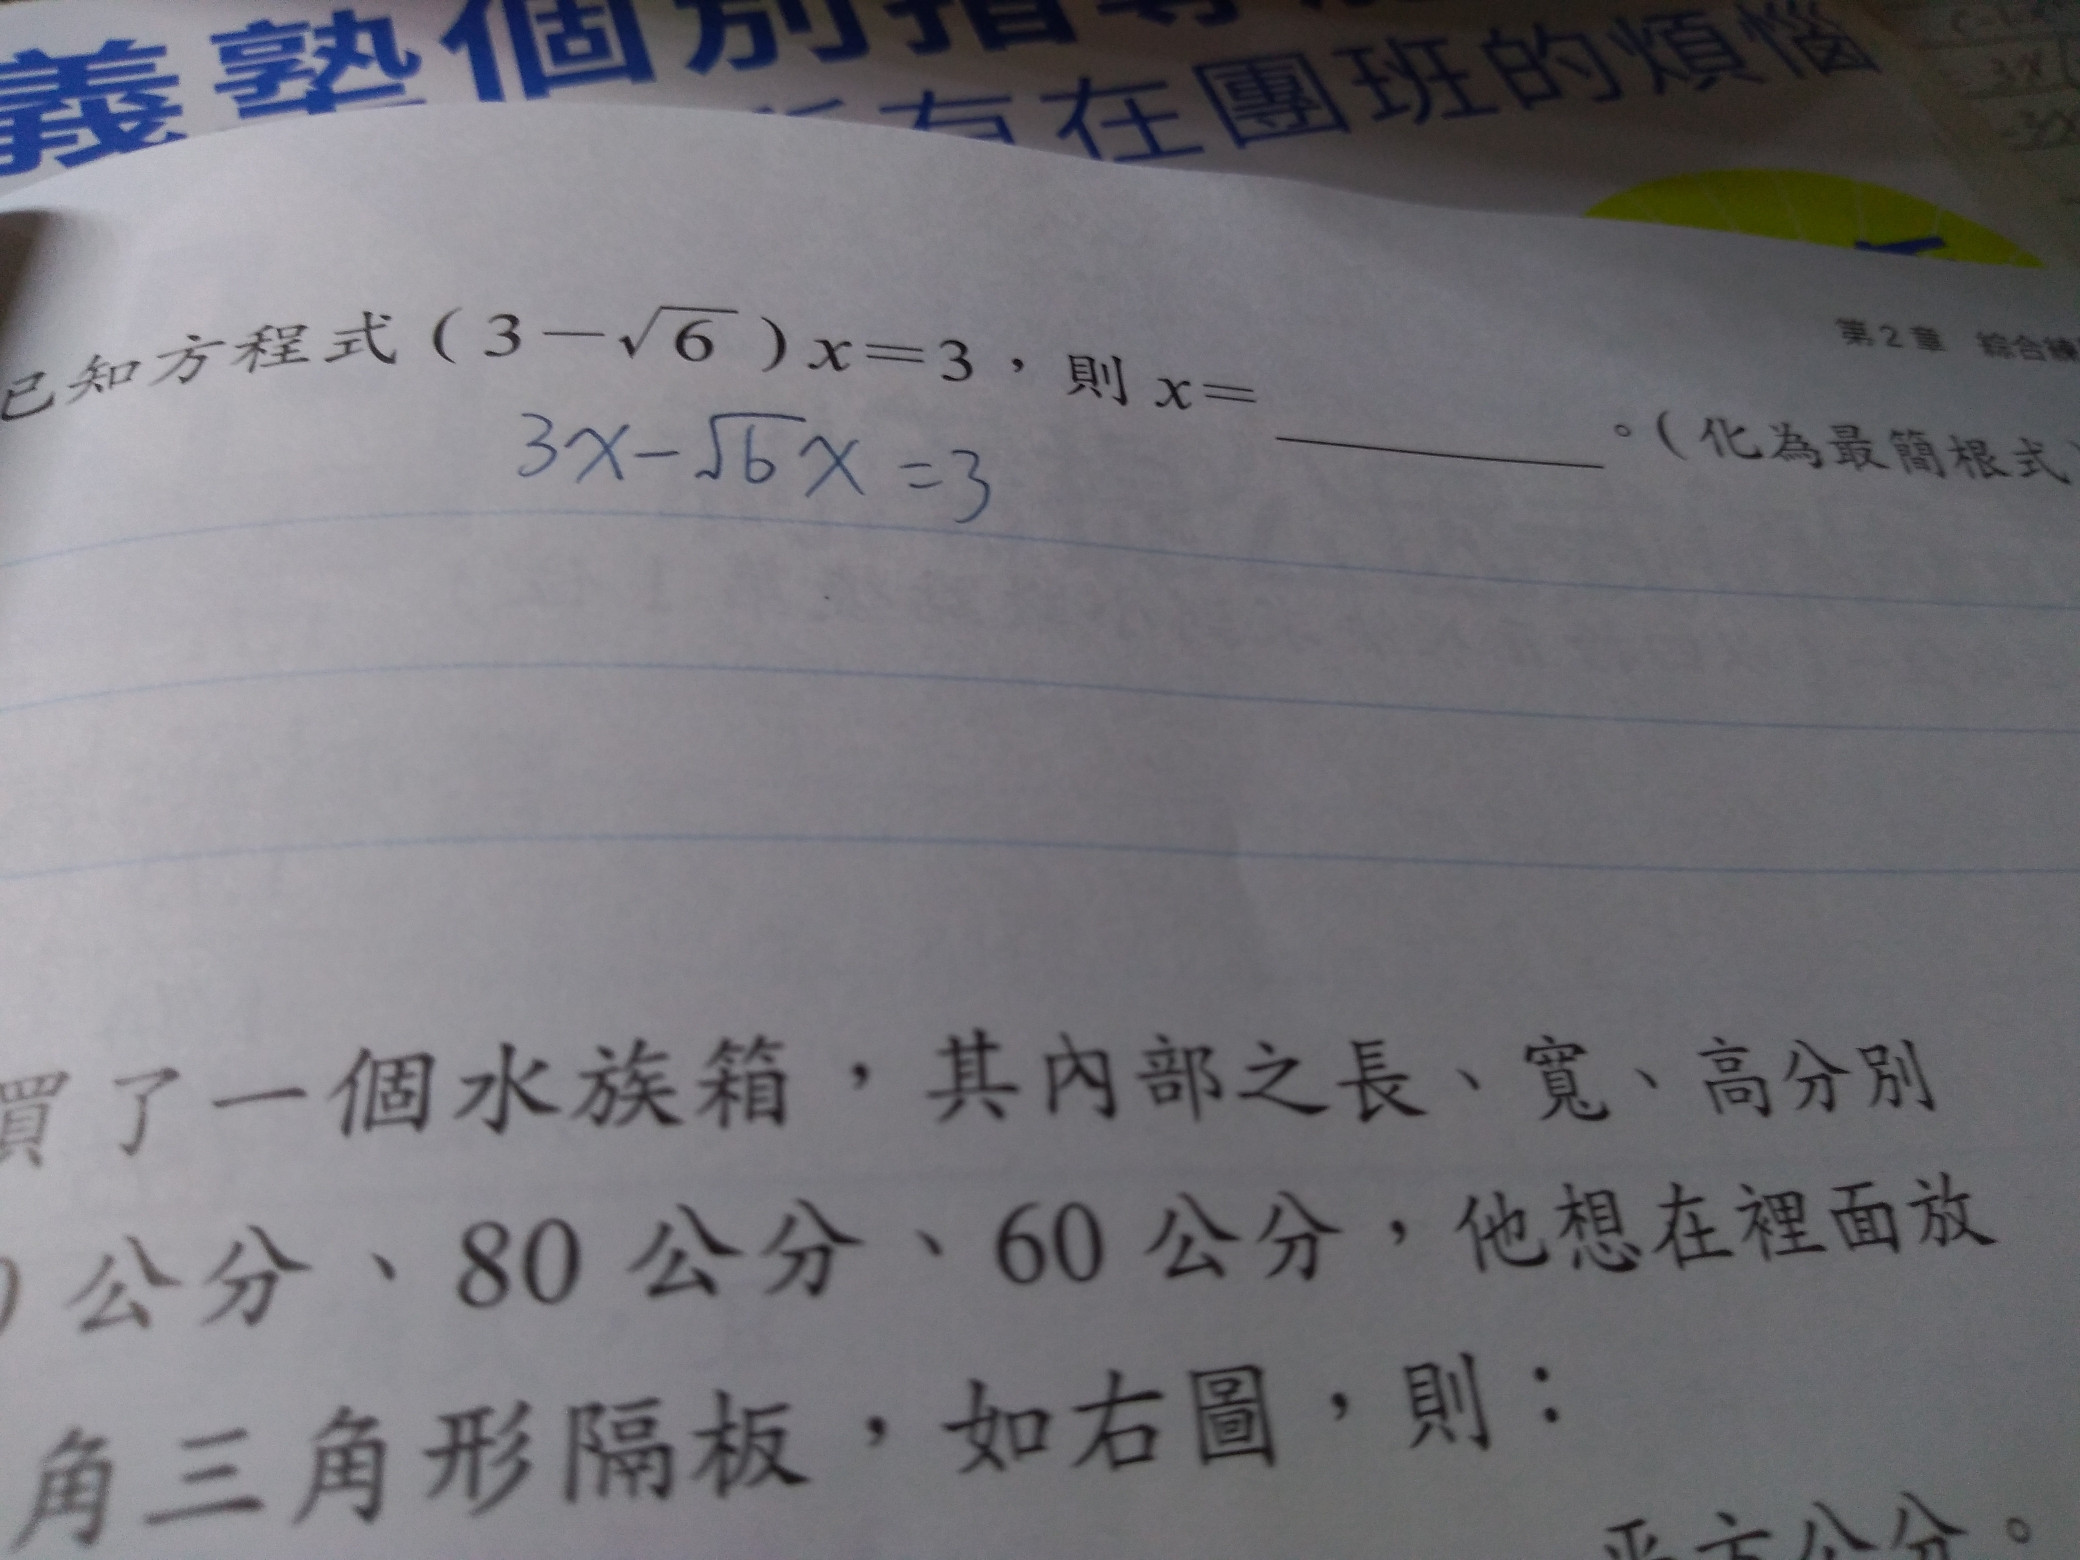 義塾個別指導
有在團班的煩惱
第2章 綜合練
已知方程式(3-√6)x=3,則 x=______。(化為最簡根式)
3x-√6x=3
買了一個水族箱,其內部之長、寬、高分別
公分、80 公分、60 公分,他想在裡面放
角三角形隔板,如右圖,則:
平方公分。